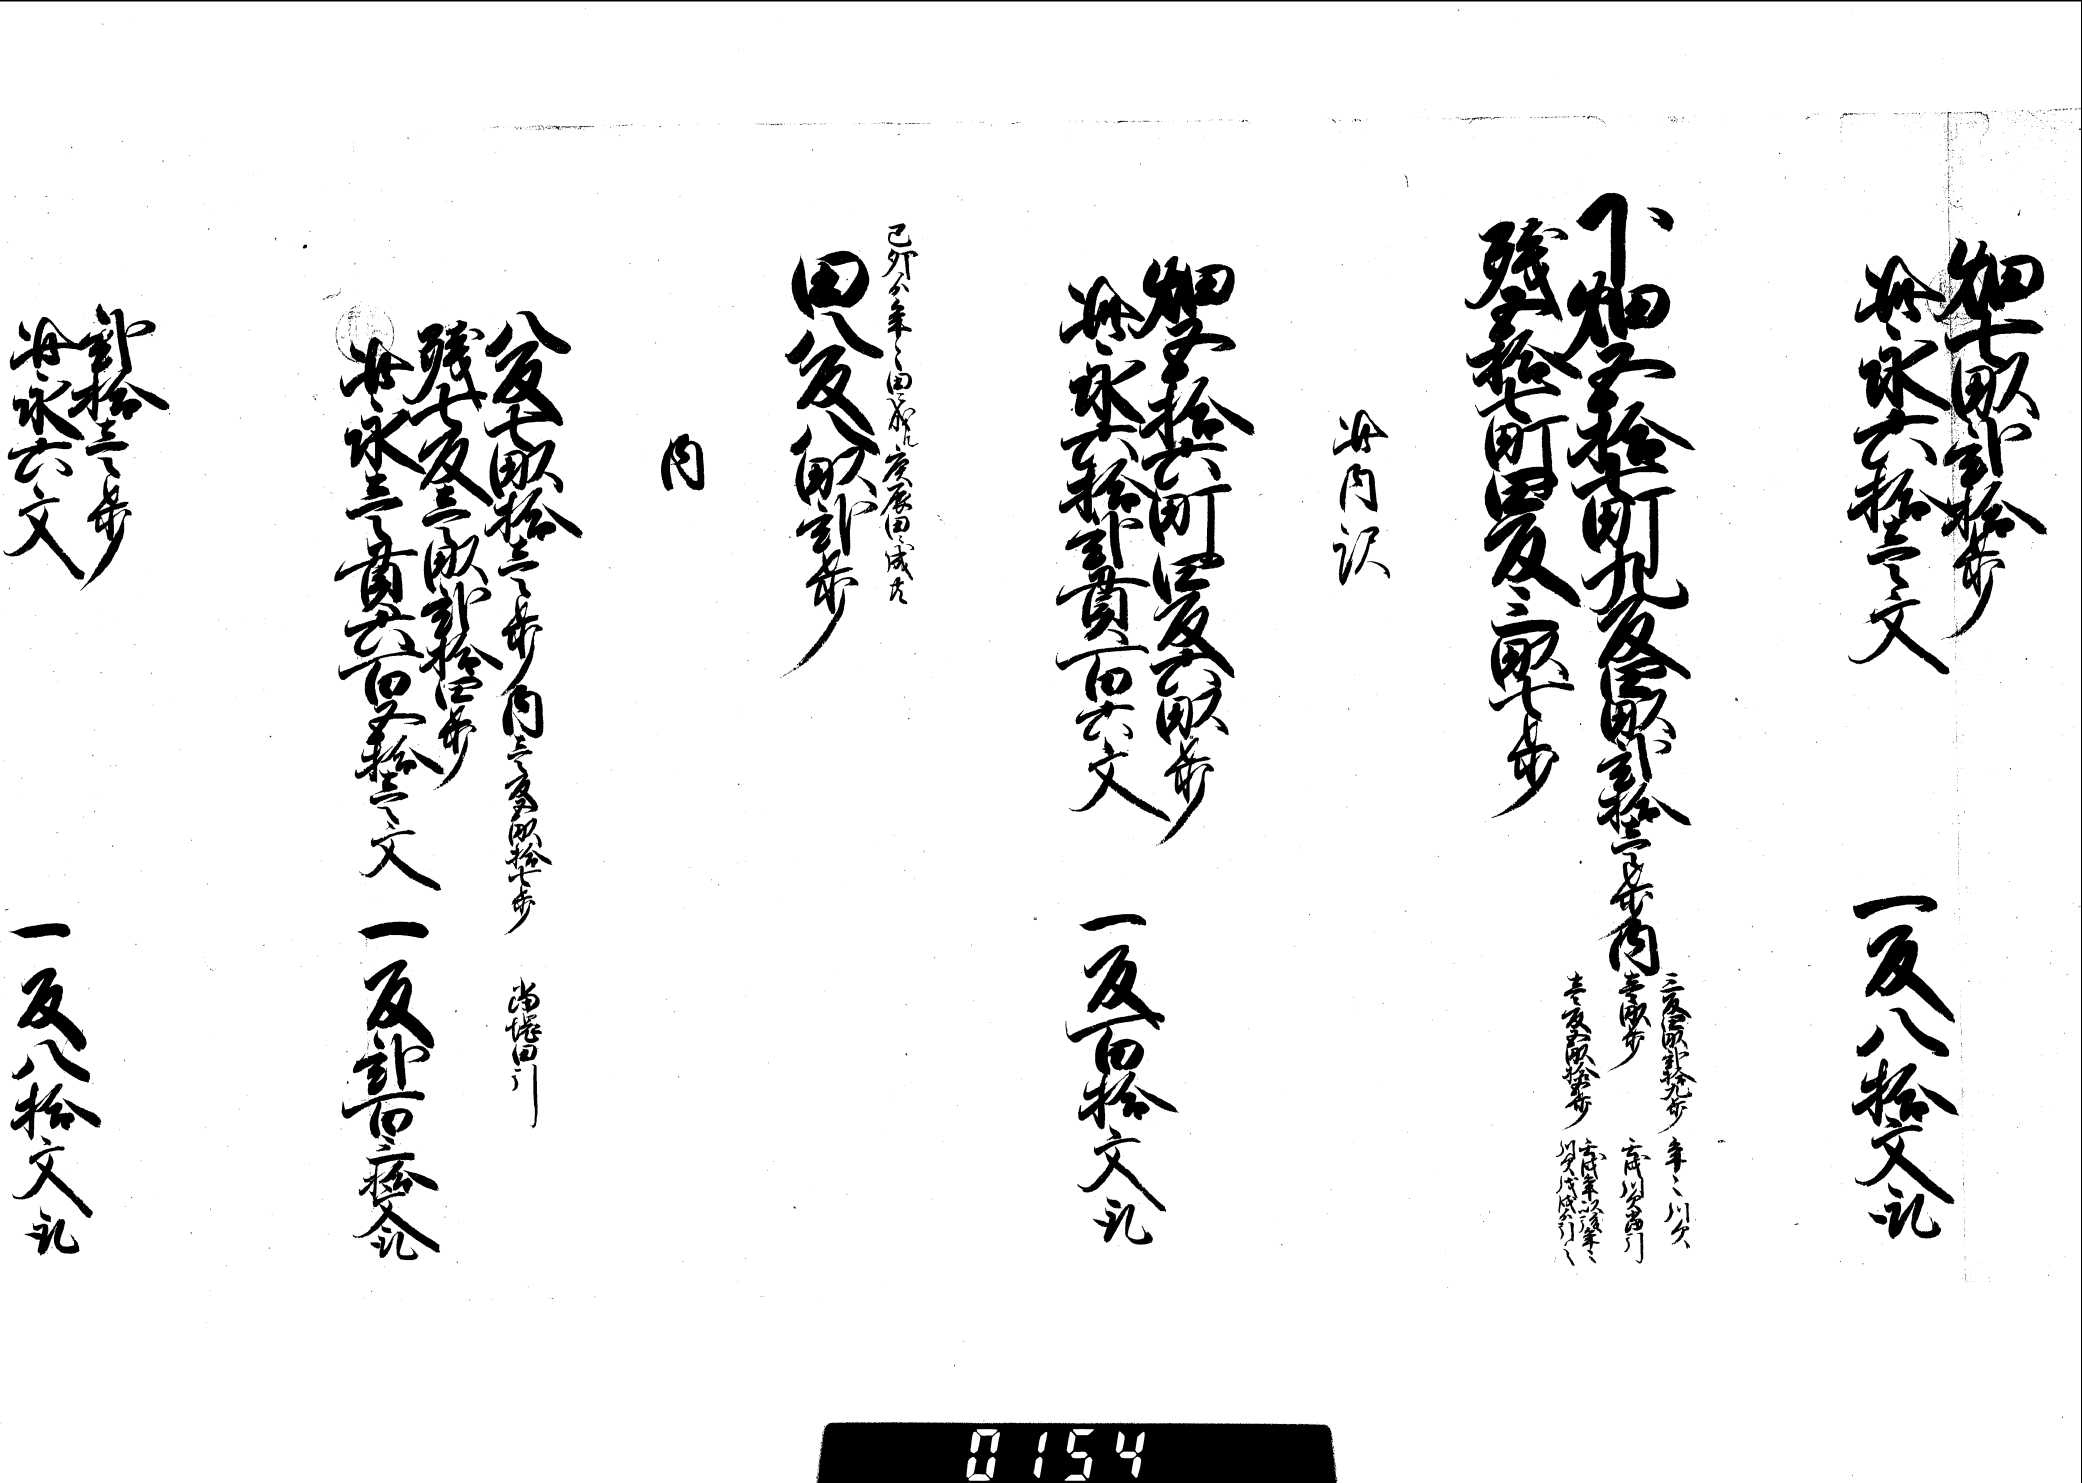 畑七畝弐拾歩
此永六拾壱文　一反八拾文取
下畑五拾七町九反四畝弐拾壱歩内
三反四畝弐拾九歩　年々川欠
壱畝歩　壬戌川欠当引
壱反五畝拾五歩　壬戌年以後年々
残五拾七町四反三畝七歩
此内訳
畑五拾六町四反六畝歩
此永六拾弐貫百六文　一反百拾文取
己卯より年々田成庚辰田ニ成
田八反八畝弐歩
内
八反七畝拾壱歩内壱反五畝拾七歩　当堰田引
残七反壱畝弐拾四歩
此永壱貫六百五拾壱文　一反弐百三拾文取
弐拾壱歩
此永六文　一反八拾文取
0154